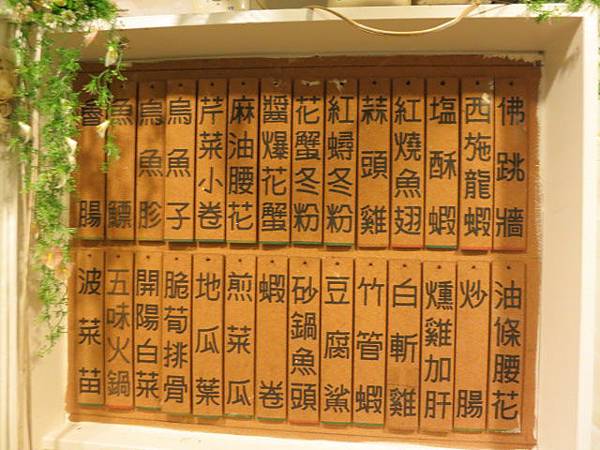 佛跳牆
西施龍蝦
塩酥蝦
紅燒魚翅
蒜頭雞
紅蟳冬粉
花蟹冬粉
醬爆花蟹
麻油腰花
芹菜小卷
烏魚子
烏魚胗
魚鰾
腸
油條腰花
炒腸
燻雞加肝
白斬雞
竹管蝦
豆腐鯊
砂鍋魚頭
蝦卷
煎菜瓜
地瓜葉
脆筍排骨
開陽白菜
五味火鍋
波菜苗